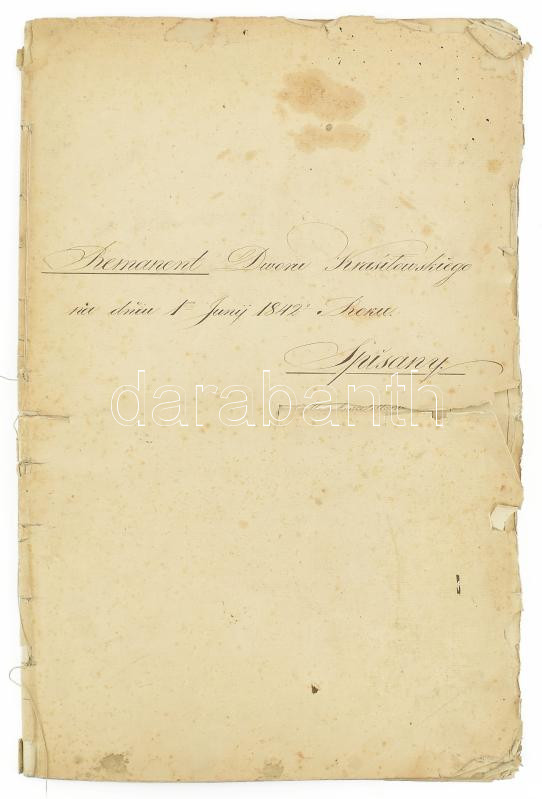 Remanent Dworu Krasiłowskiego
na dniu 1º Junij 1842º Roku
Spisany
darabanth